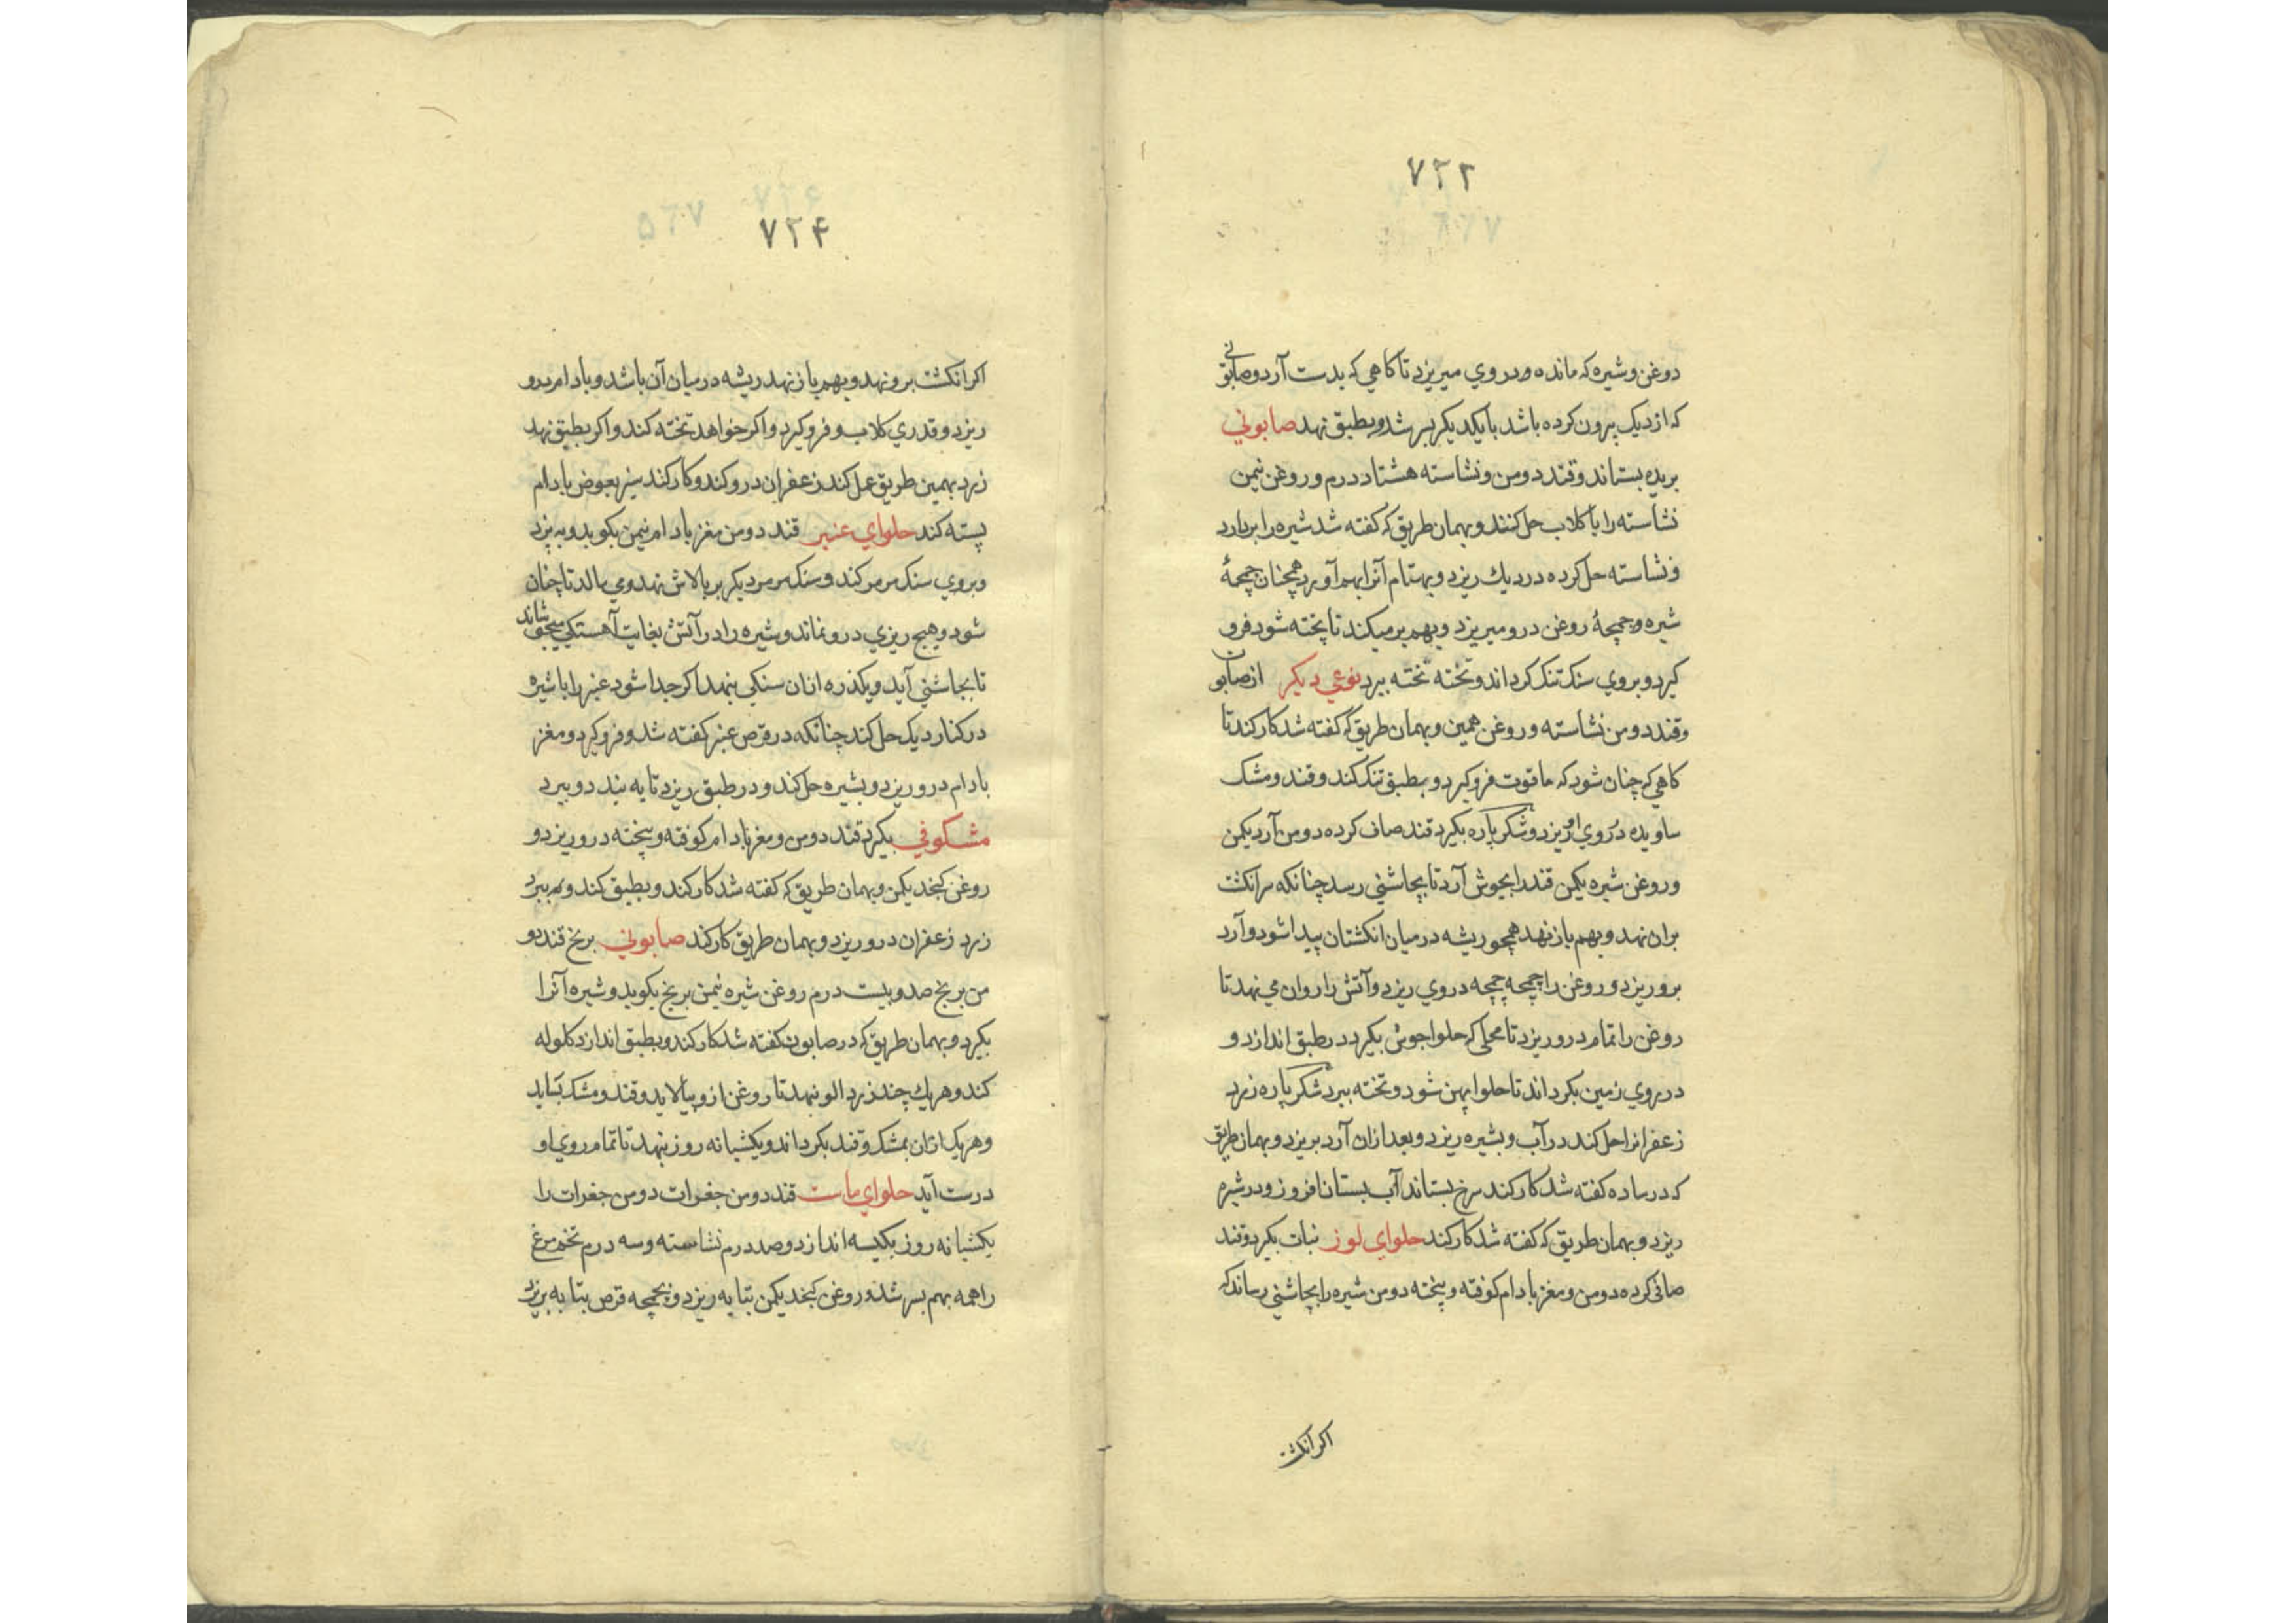 ۷۲۲
دوغن وشیره که مانده ودروی میریزد تا کاهی که بدست آرد وصابونی
که ازدیک بیرون کرده باشد بایکدیکر بسرشد وبطبق نهد صابونی
بریده بستاند وقند دومن ونشاسته هشتاد درم وروغن نیمن
نشاسته را با کلاب حل کنند وبهمان طریق که کفته شد شیره را بردارد
ونشاسته حل کرده دردیك ریزد وبهتمام آنرا بهم آورد همچنان چمچهٔ
شیره وچمچهٔ روغن درو میریزد وبهم برمیکند تا پخته شود فرو
کیرد وبروی سنک تنک کرداند وتخته تخته ببرد نوعی دیکر ازصابون
وقند دومن نشاسته وروغن همین وبهمان طریق که کفته شد کارکند تا
کاهی که چنان شود که ماقوت فروکیرد وبطبق تنک کند وقند ومشک
ساویده دروی او ریزد وشکرپاره بکیرد قند صاف کرده دومن آرد یکمن
وروغن شیره یکمن قند را بجوش آرد تا بچاشنی رسد چنانکه سرانکشت
بران نهد وبهم بازنهد همچو ریشه درمیان انکشتان پیدا شود وآرد
برو ریزد وروغن را چمچه چمچه دروی ریزد وآتش را روان می نهد تا
روغن را تمام درو ریزد تا محلی که حلوا جوش بکیرد درطبق اندازد و
درروی زمین بکرداند تا حلوا پهن شود وتخته ببرد شکرپاره زرد
زعفرانرا حل کند درآب وبشیره ریزد وبعدازان آرد بریزد وبهمان طریق
که درساده کفته شد کارکند سرخ بستاند آب بستان افروز ودرشیره
ریزد وبهمان طریق که کفته شد کارکند حلوای لوز نبات بکیرد وقند
صافی کرده دومن ومغز بادام کوفته وپخته دومن شیره را بچاشنی رساند که
اکر انکشت
۷۲۴
اکر انکشت برو نهد وبهم بازنهد ریشه درمیان آن باشد وبادام برو
ریزد وقدری کلاب وفروکیرد واکر خواهد تخته کند واکر بطبق نهد
زرد بهمین طریق عمل کند زعفران درو کند وکارکند سبز بعوض بادام
پسته کند حلوای عنبر قند دومن مغز بادام نیمن بکوبد وبه پزد
وبروی سنک مرمر کند وسنک مرمر دیکر بر بالاش نهد ومی مالد تا چنان
شود وهیچ ریزی درو نماند وشیره را درآتش بغایت آهستکی بجوشاند
تا بچاشنی آید وبکذرد ازان سنکی بنهد اکر جدا شود عنبر را با شیره
درکنار دیک حل کند چنانکه درقرص عنبر کفته شد وفروکیرد ومغز
بادام درو ریزد وبشیره حل کند ودرطبق ریزد تا به بندد وببرد
مشکوفی بکیرد قند دومن ومغز بادام کوفته وپخته درو ریزد و
روغن کنجد یکمن وبهمان طریق که کفته شد کارکند وبطبق کند وبه ببرد
زرد زعفران درو ریزد وبهمان طریق کارکند صابونی برنج قند دو
من برنج صد وبیست درم روغن شیره نیمن برنج بکوبد وشیره آنرا
بکیرد وبهمان طریق که درصابون کفته شد کارکند وبطبق اندازد کلوله
کند وهریك چند زردالو نهد تا روغن ازو بپالاید وقند ومشک بساید
وهریک ازان بمشک وقند بکرداند ویکشبانه روز بنهد تا تمام روی او
درست آید حلوای ماست قند دومن جغرات دومن جغرات را
یکشبانه روز بکیسه اندازد وصد درم نشاسته وسه درم تخم مرغ
را همه بهم بسرشد وروغن کنجد یکمن بتابه ریزد وبچمچه قرص بتابه بریزد